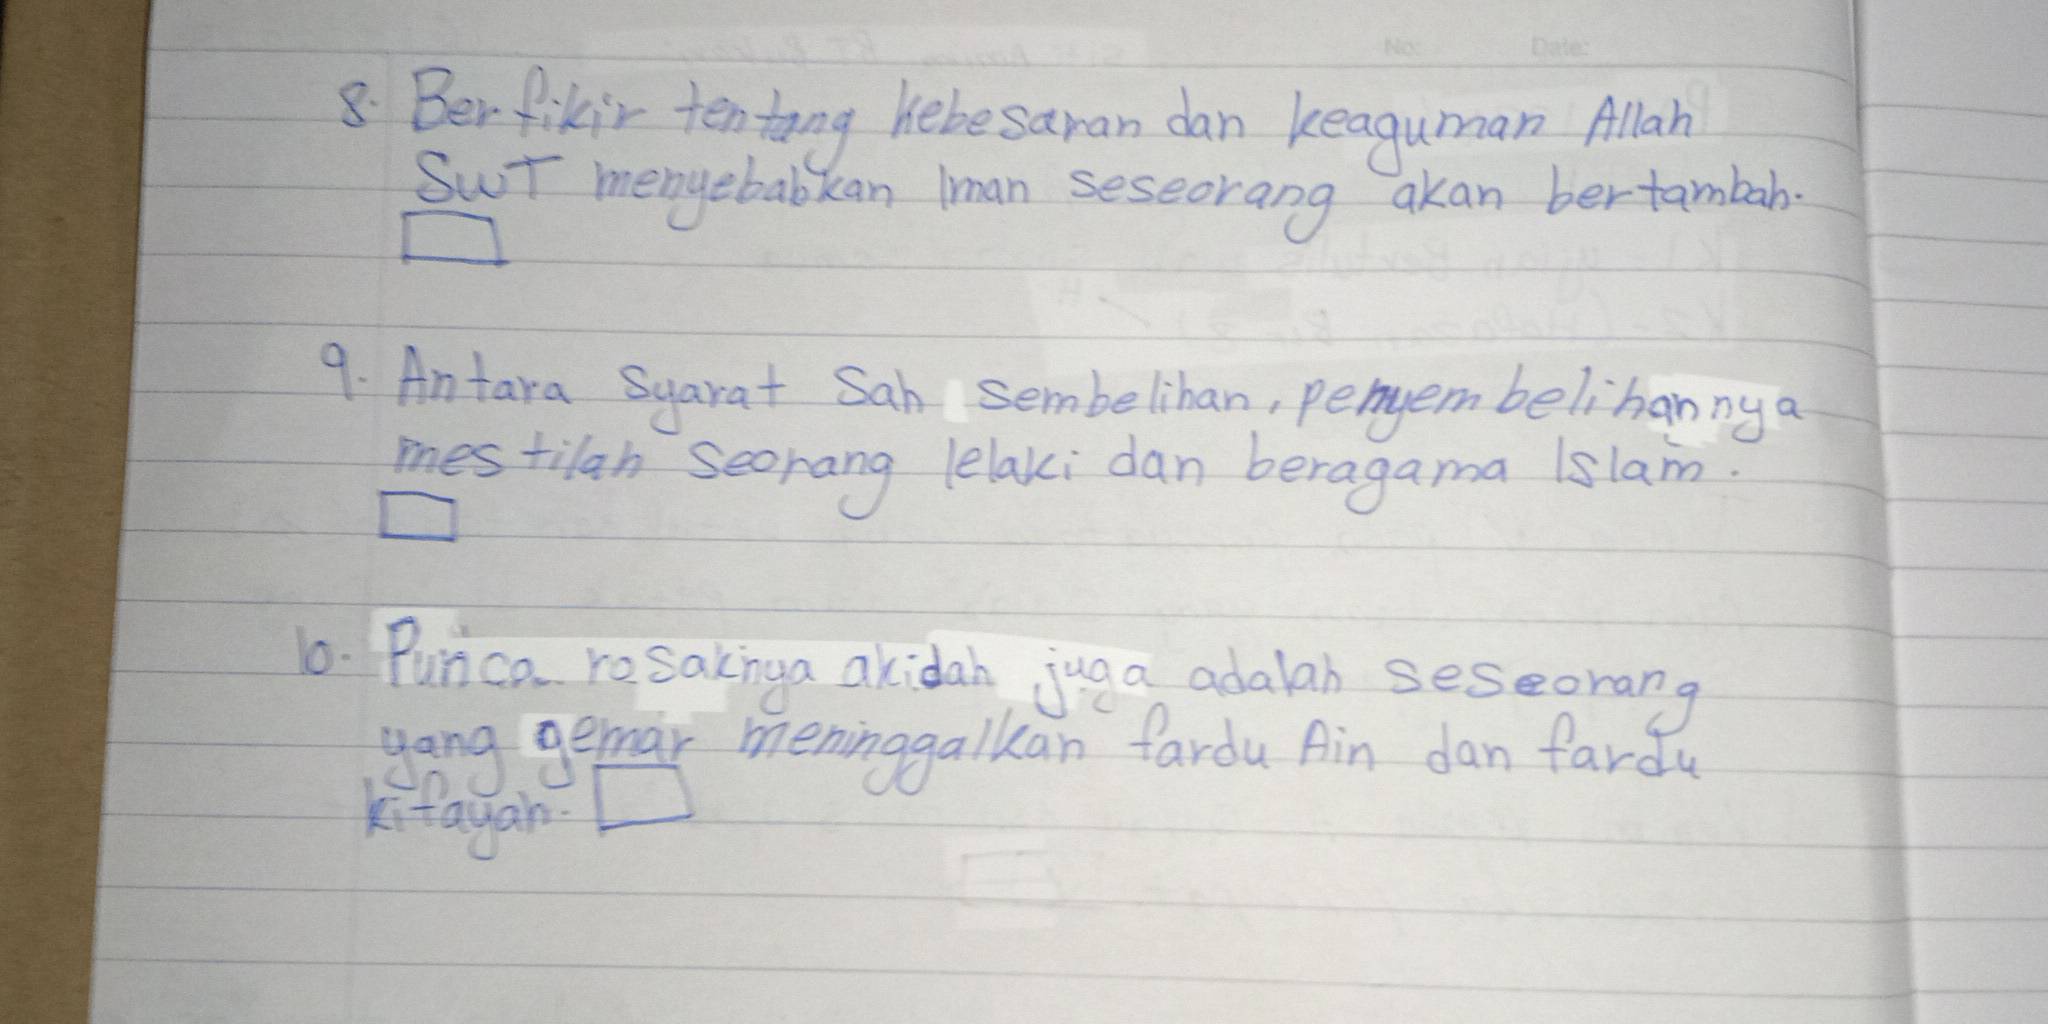 No: Date:
8. Berfikir tentang kebesaran dan keaguman Allah
SWT menyebabkan Iman seseorang akan bertambah.
9. Antara Syarat Sah Sembelihan, penyembelihannya
mestilah seorang lelaki dan beragama Islam.
10. Punca rosaknya akidah juga adalah seseorang
yang gemar meninggalkan fardu Ain dan fardu
kifayah.